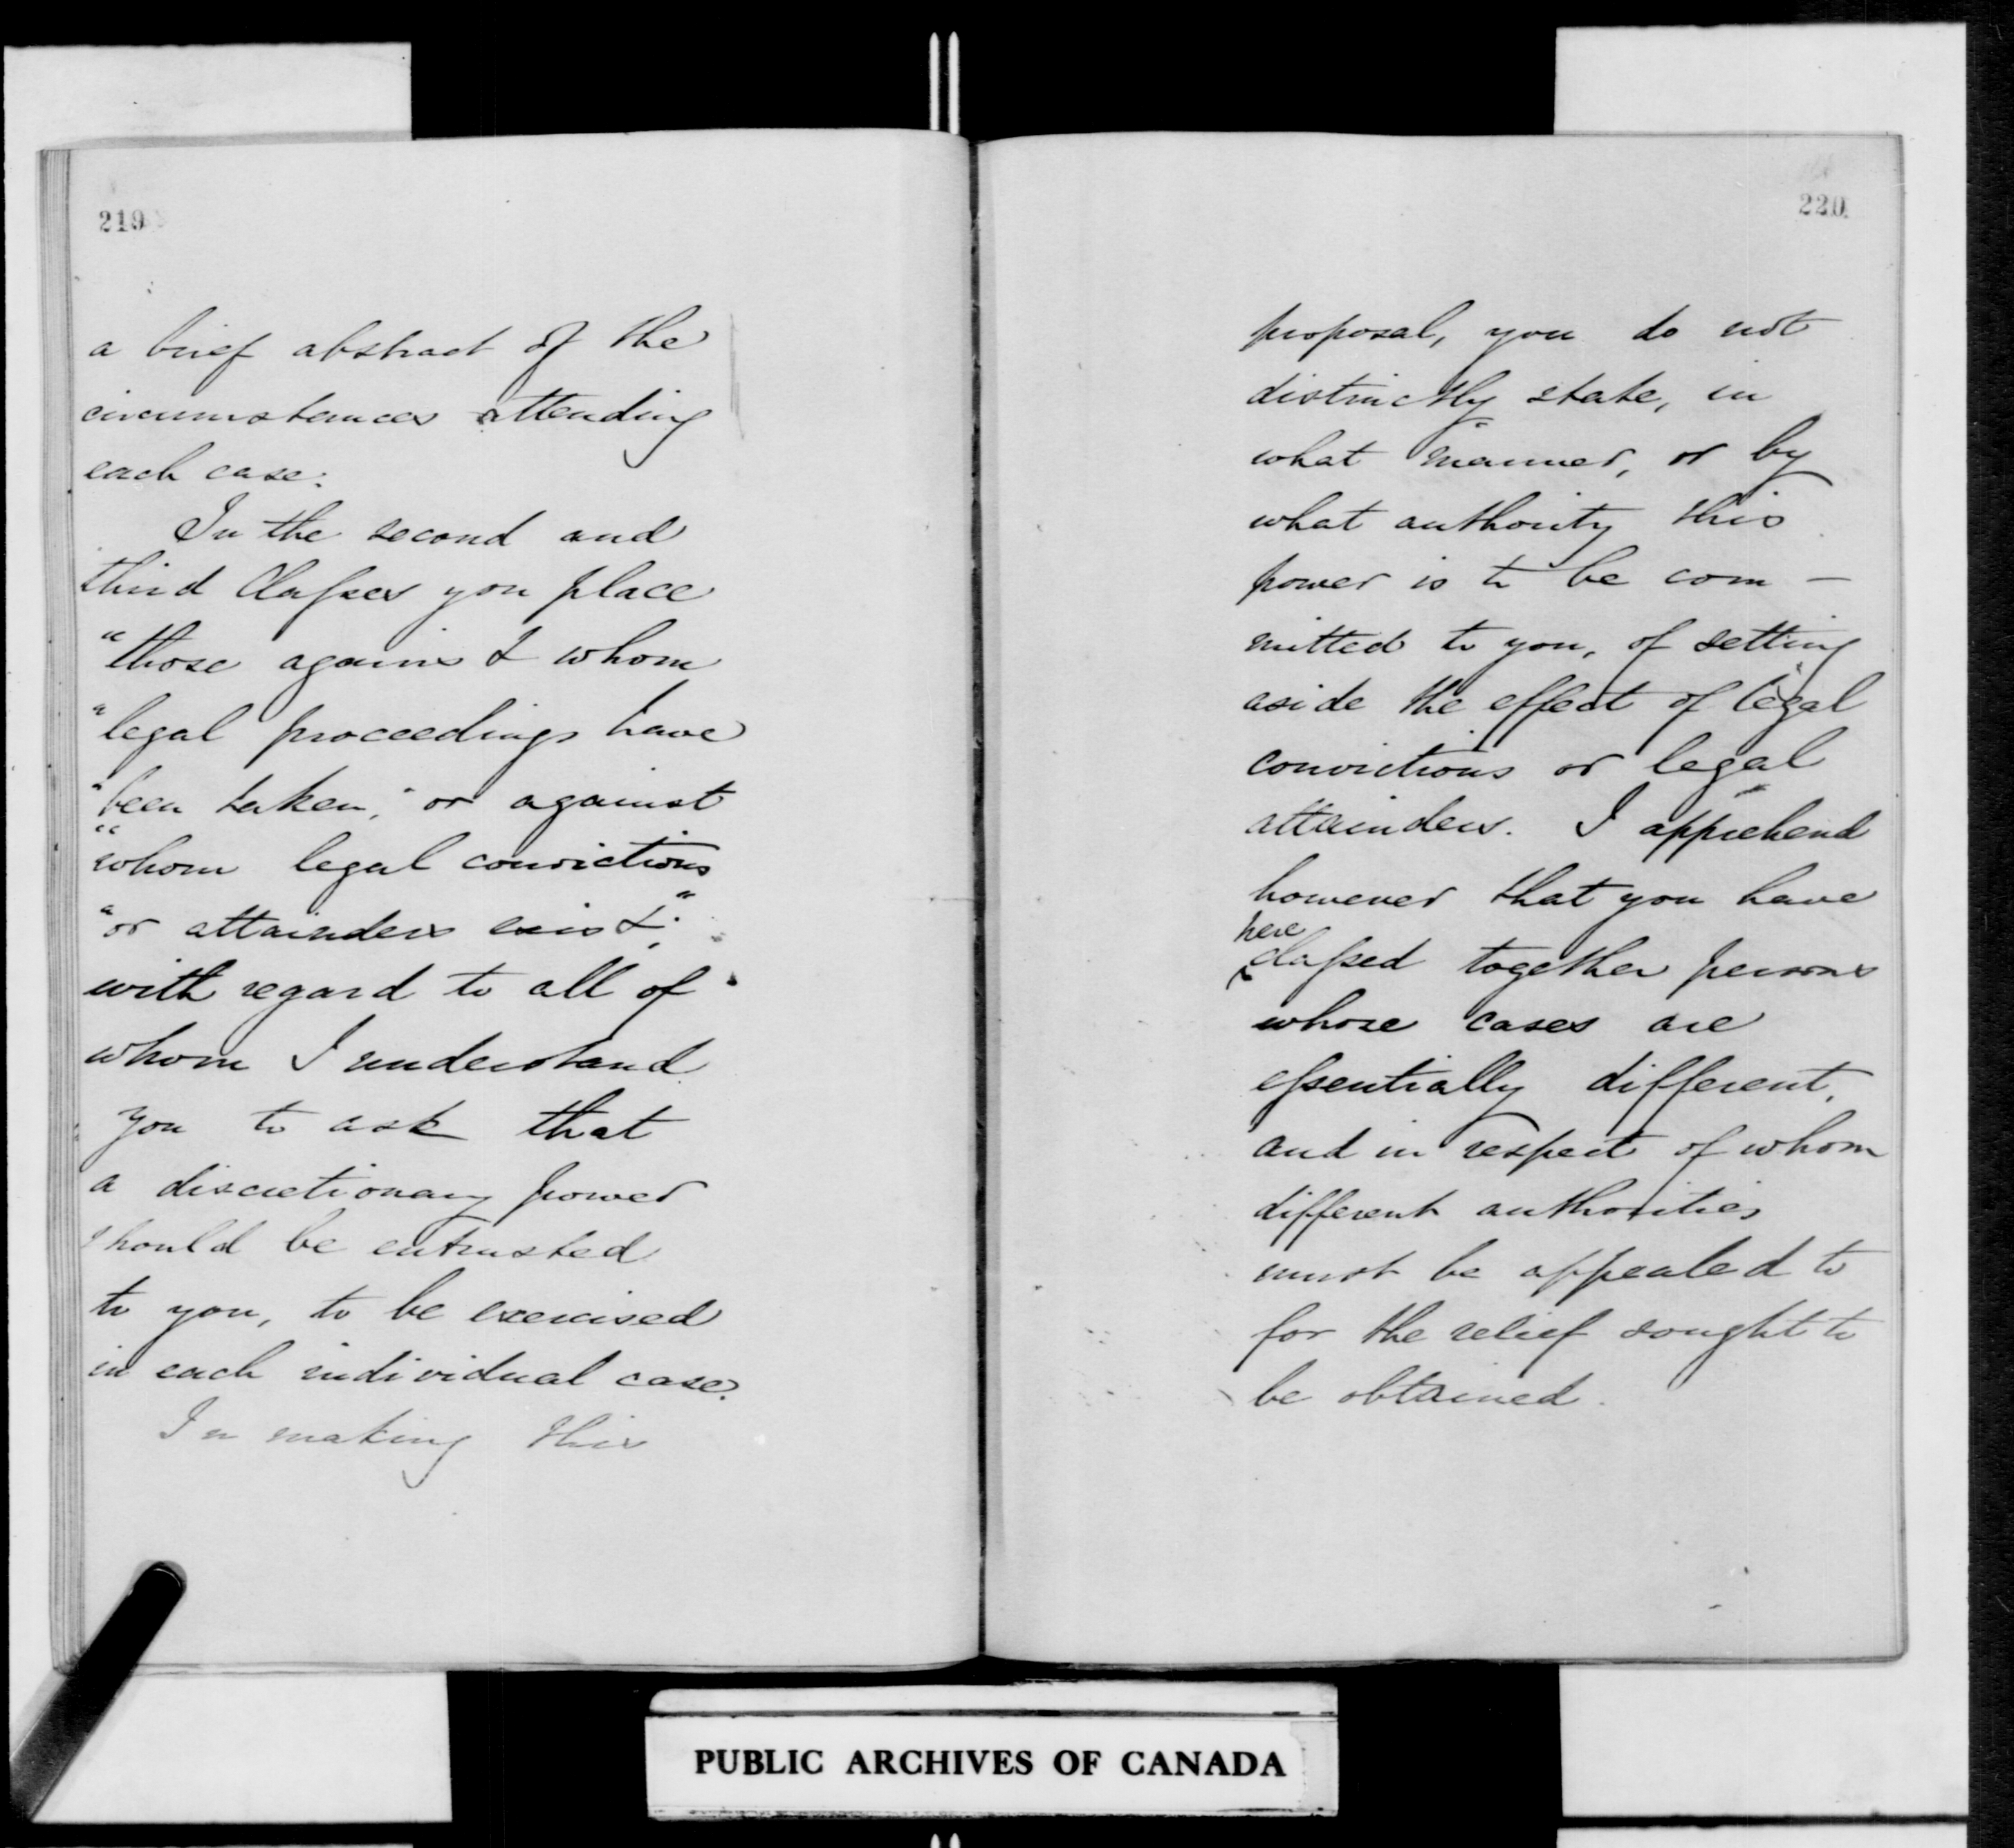 219
a brief abstract of the
circumstances attending
each case.
In the second and
third Classes you place
"those against whom
"legal proceedings have
"been taken," or against
"whom legal convictions
"or attainders exist;"
with regard to all of
whom I understand
you to ask that
a discretionary power
should be entrusted
to you, to be exercised
in each individual case.
In making this
220
proposal, you do not
distinctly state, in
what manner, or by
what authority this
power is to be com-
mitted to you, of setting
aside the effect of legal
convictions or legal
attainders. I apprehend
however that you have
here
classed together persons
whose cases are
essentially different,
and in respect of whom
different authorities
must be appealed to
for the relief sought to
be obtained.
PUBLIC ARCHIVES OF CANADA